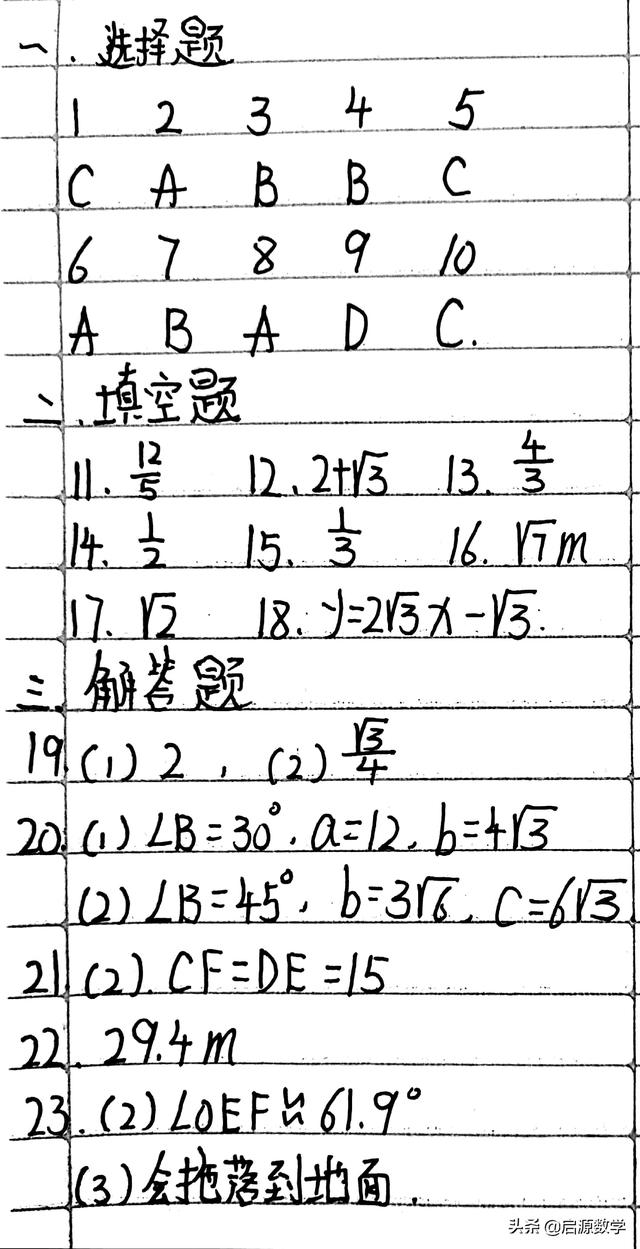 一. 选择题
1 2 3 4 5
C A B B C
6 7 8 9 10
A B A D C.
二. 填空题
11. 12/5 12. 2+√3 13. 4/3
14. 1/2 15. 1/3 16. √7m
17. √2 18. y=2√3x-√3.
三. 解答题
19. (1) 2 , (2) √3/4
20. (1) ∠B=30°. a=12. b=4√3
(2) ∠B=45°. b=3√6. C=6√3
21. (2). CF=DE=15
22. 29.4m
23. (2) ∠OEF≈61.9°
(3) 会拖落到地面.
头条 @启源数学